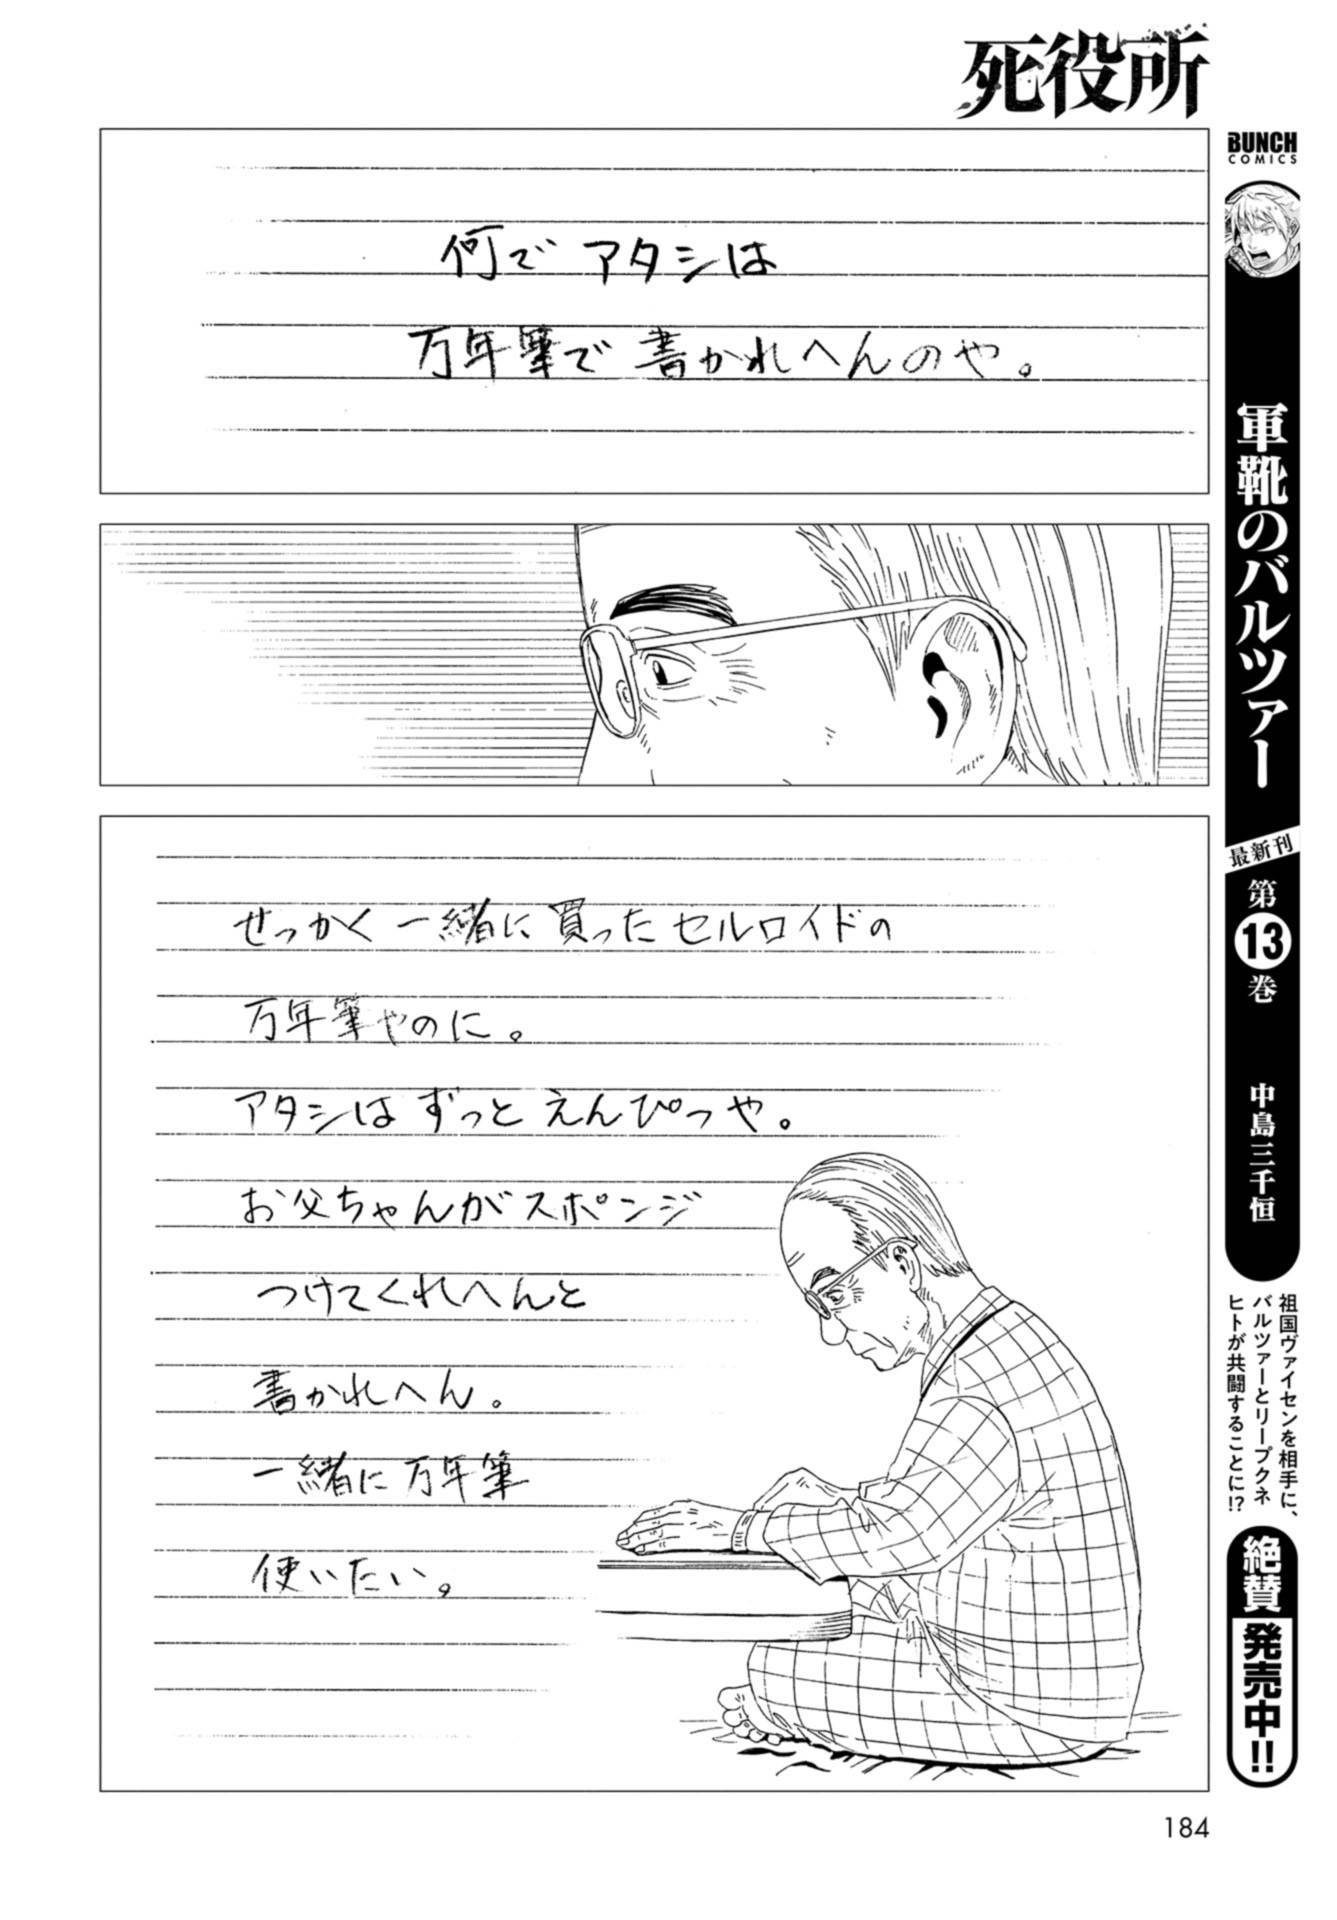 死役所
何でアタシは
万年筆で書かれへんのや。
せっかく一緒に買ったセルロイドの
万年筆やのに。
アタシはずっとえんぴつや。
お父ちゃんがスポンジ
つけてくれへんと
書かれへん。
一緒に万年筆
使いたい。
BUNCH
COMICS
軍靴のバルツァー
最新刊
第13巻
中島三千恒
祖国ヴァイセンを相手に、
バルツァーとリープクネ
ヒトが共闘することに!?
絶賛
発売中!!
184